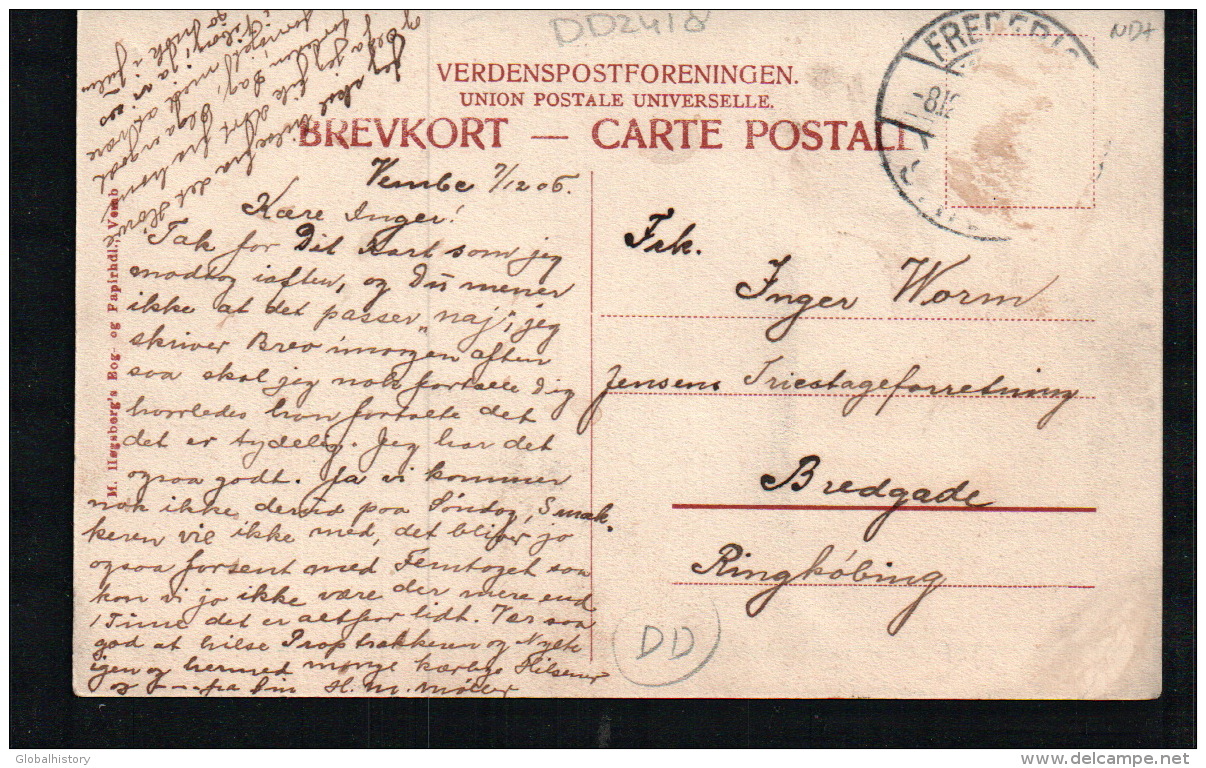 DD2418
ND+
VERDENSPOSTFORENINGEN.
UNION POSTALE UNIVERSELLE.
BREVKORT — CARTE POSTALE
FREDERIC
M. Høgsberg's Bog- og Papirhdl., Vemb
Vembe 7/12 06.
Kære Inger!
Tak for Dit Kort som jeg
modtog iaften, og Du mener
ikke at det passer „naj", jeg
skriver Brev imorgen aften
saa skal jeg nok fortælle Dig
hvorledes hun fortalte det
det er tydelig. Jeg har det
ogsaa godt. Ja vi kommer
nok ikke derud paa Søndag, Smæk-
keren vil ikke med, det bliver jo
ogsaa forsent med Femtoget saa
kan vi jo ikke være der mere end
1 Time det er altfor lidt. Vær saa
god at hilse Proptrækkeren og
igen og hermed mange kærlige Hilsener
fra Din H. M. Møller
Jeg skal hilse fra det
Frk.
Inger Worm
Jensens Tricotageforretning
Bredgade
Ringköbing
DD
Globalhistory
delcampe.net